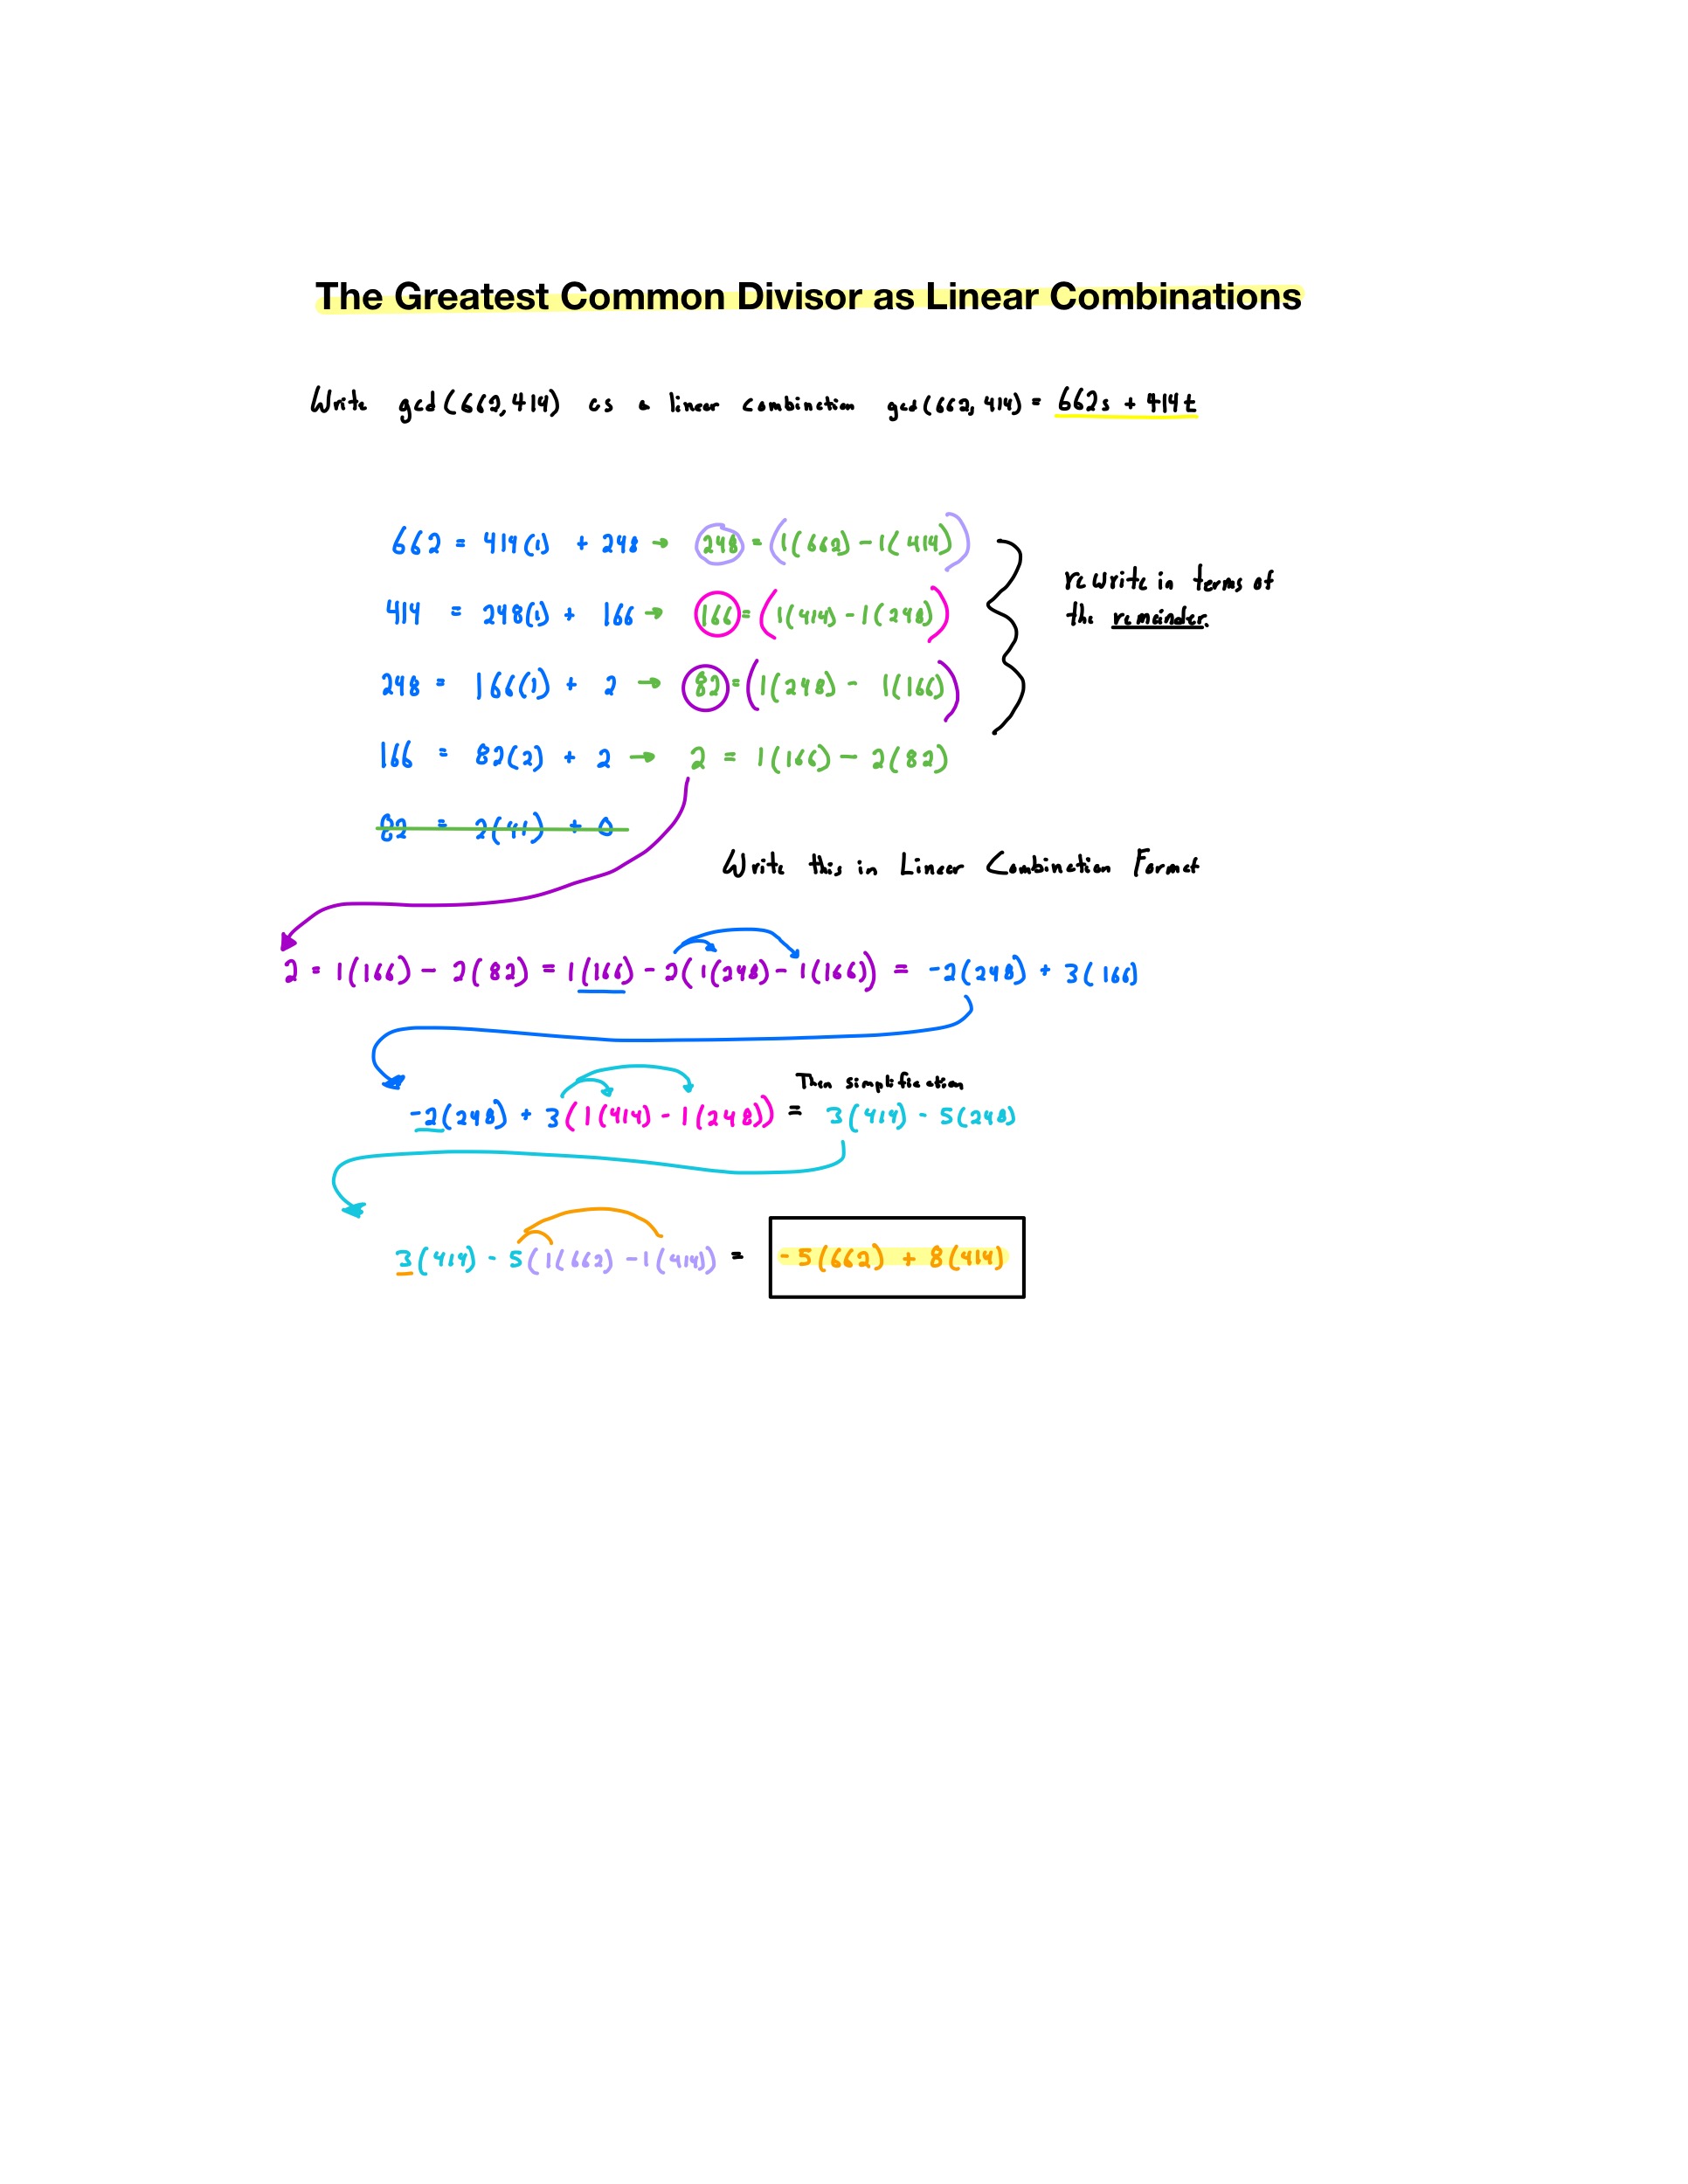 The Greatest Common Divisor as Linear Combinations
Write gcd(662,414) as a linear combination gcd(662,414) = 662s + 414t
662 = 414(1) + 248 → 248 = (1(662) - 1(414))
414 = 248(1) + 166 → 166 = (1(414) - 1(248))
rewrite in terms of
the remainder.
248 = 166(1) + 2 → 82 = (1(248) - 1(166))
166 = 82(2) + 2 → 2 = 1(166) - 2(82)
82 = 2(41) + 0
Write this in Linear Combination Format
2 = 1(166) - 2(82) = 1(166) - 2(1(248) - 1(166)) = -2(248) + 3(166)
Then simplification
-2(248) + 3(1(414) - 1(248)) = 3(414) - 5(248)
3(414) - 5(1(662) - 1(414)) = -5(662) + 8(414)